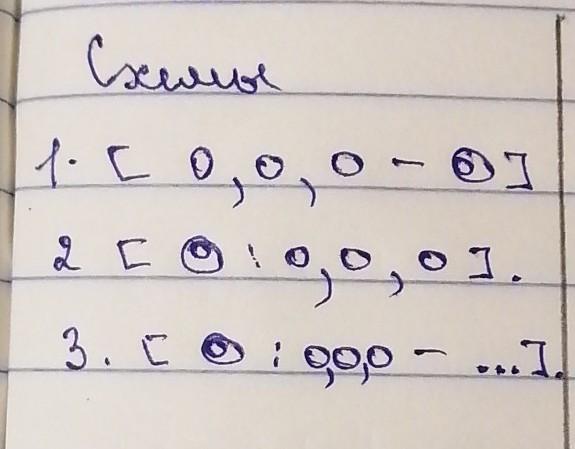 Схемы
1. [ О, О, О – ⊙]
2 [ ⊙ : О, О, О ].
3. [ ⊙ : О,О,О – ...].